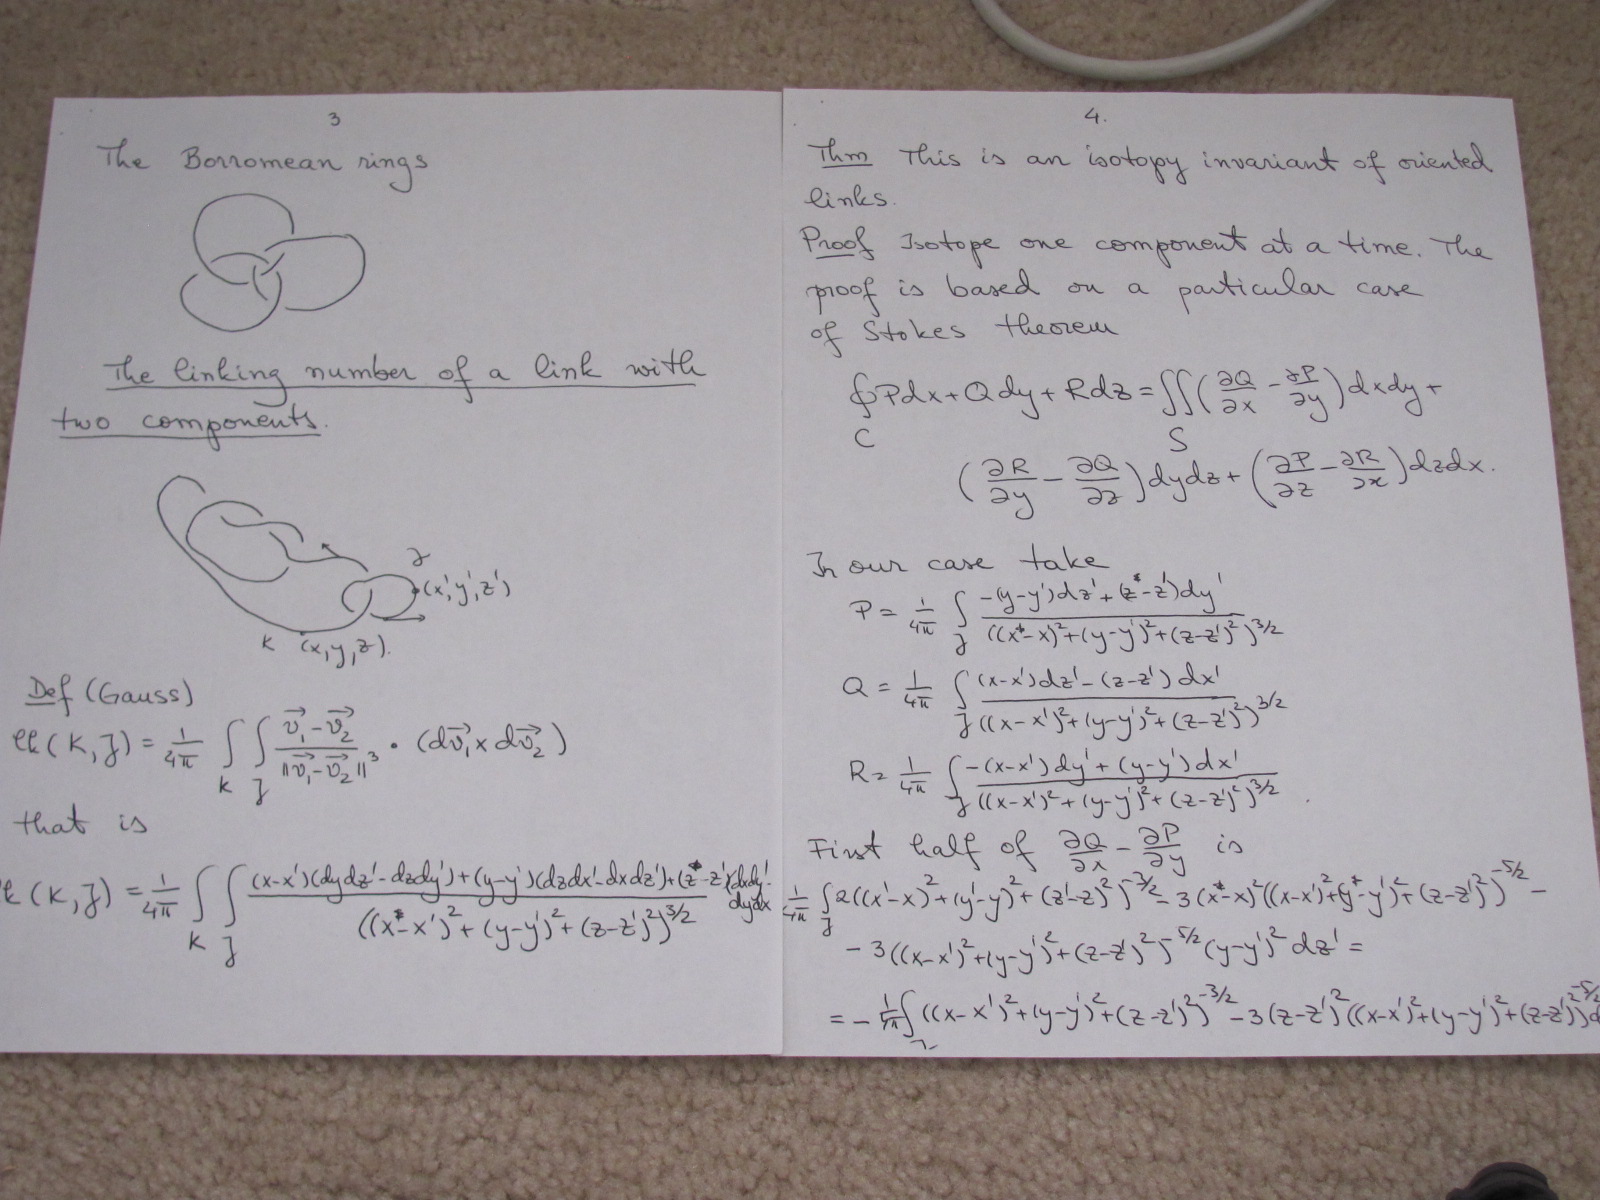 3
The Borromean rings
The linking number of a link with
two components.
J
(x',y',z')
K (x,y,z).
Def (Gauss)
lk(K,J) = 1/4π ∫_K ∫_J (v⃗₁-v⃗₂)/||v⃗₁-v⃗₂||³ · (dv⃗₁ x dv⃗₂)
that is
lk(K,J) = 1/4π ∫_K ∫_J ((x-x')(dydz'-dzdy')+(y-y')(dzdx'-dxdz')+(z-z')(dxdy'-dydx'))/((x-x')²+(y-y')²+(z-z')²)^3/2
4.
Thm This is an isotopy invariant of oriented
links.
Proof Isotope one component at a time. The
proof is based on a particular case
of Stokes theorem
∮_C Pdx+Qdy+Rdz = ∬_S (∂Q/∂x - ∂P/∂y)dxdy+
(∂R/∂y - ∂Q/∂z)dydz+(∂P/∂z - ∂R/∂x)dzdx.
In our case take
P = 1/4π ∫_J (-(y-y')dz'+(z-z')dy')/((x-x)²+(y-y')²+(z-z')²)^3/2
Q = 1/4π ∫_J ((x-x')dz'-(z-z')dx')/((x-x')²+(y-y')²+(z-z')²)^3/2
R = 1/4π ∫_J (-(x-x')dy'+(y-y')dx')/((x-x')²+(y-y')²+(z-z')²)^3/2.
First half of ∂Q/∂x - ∂P/∂y is
1/4π ∫_J 2((x'-x)²+(y'-y)²+(z'-z)²)^-3/2 - 3(x-x)²((x-x')²+(y-y')²+(z-z')²)^-5/2 -
- 3((x-x')²+(y-y')²+(z-z')²)^-5/2 (y-y')² dz' =
= - 1/4π ∫_J ((x-x')²+(y-y')²+(z-z')²)^-3/2 - 3(z-z')²((x-x')²+(y-y')²+(z-z')²)^-5/2